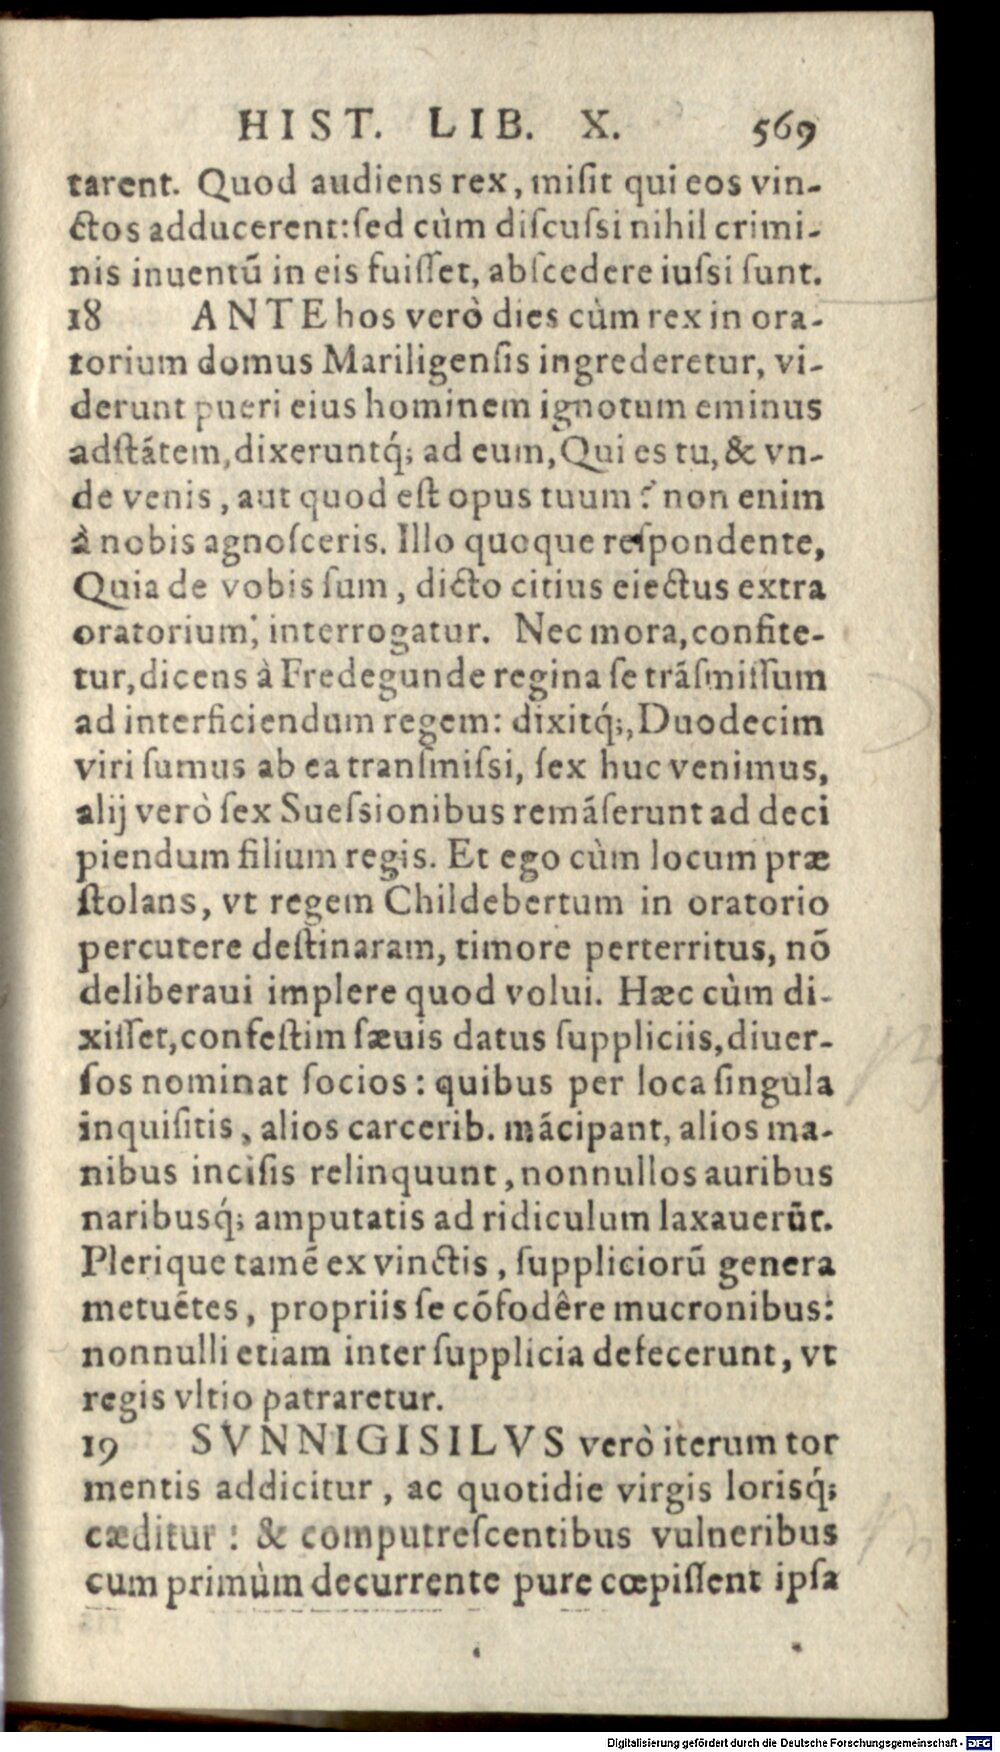 HIST. LIB. X. 569
tarent. Quod audiens rex, misit qui eos vin-
ctos adducerent: sed cùm discussi nihil crimi-
nis inuentũ in eis fuisset, abscedere iussi sunt.
18 ANTE hos verò dies cùm rex in ora-
torium domus Mariligensis ingrederetur, vi-
derunt pueri eius hominem ignotum eminus
adstãtem, dixeruntq́; ad eum, Qui es tu, & vn-
de venis, aut quod est opus tuum? non enim
à nobis agnosceris. Illo quoque respondente,
Quia de vobis sum, dicto citius eiectus extra
oratorium, interrogatur. Nec mora, confite-
tur, dicens à Fredegunde regina se trãsmissum
ad interficiendum regem: dixitq́;, Duodecim
viri sumus ab ea transmissi, sex huc venimus,
alij verò sex Suessionibus remãserunt ad deci
piendum filium regis. Et ego cùm locum præ
stolans, vt regem Childebertum in oratorio
percutere destinaram, timore perterritus, nõ
deliberaui implere quod volui. Hæc cùm di-
xisset, confestim sæuis datus suppliciis, diuer-
sos nominat socios: quibus per loca singula
inquisitis, alios carcerib. mãcipant, alios ma-
nibus incisis relinquunt, nonnullos auribus
naribusq́; amputatis ad ridiculum laxauerũt.
Plerique tamẽ ex vinctis, suppliciorũ genera
metuẽtes, propriis se cõfodêre mucronibus:
nonnulli etiam inter supplicia defecerunt, vt
regis vltio patraretur.
19 SVNNIGISILVS verò iterum tor
mentis addicitur, ac quotidie virgis lorisq́;
cæditur: & computrescentibus vulneribus
cum primùm decurrente pure cœpissent ipsa
Digitalisierung gefördert durch die Deutsche Forschungsgemeinschaft - DFG